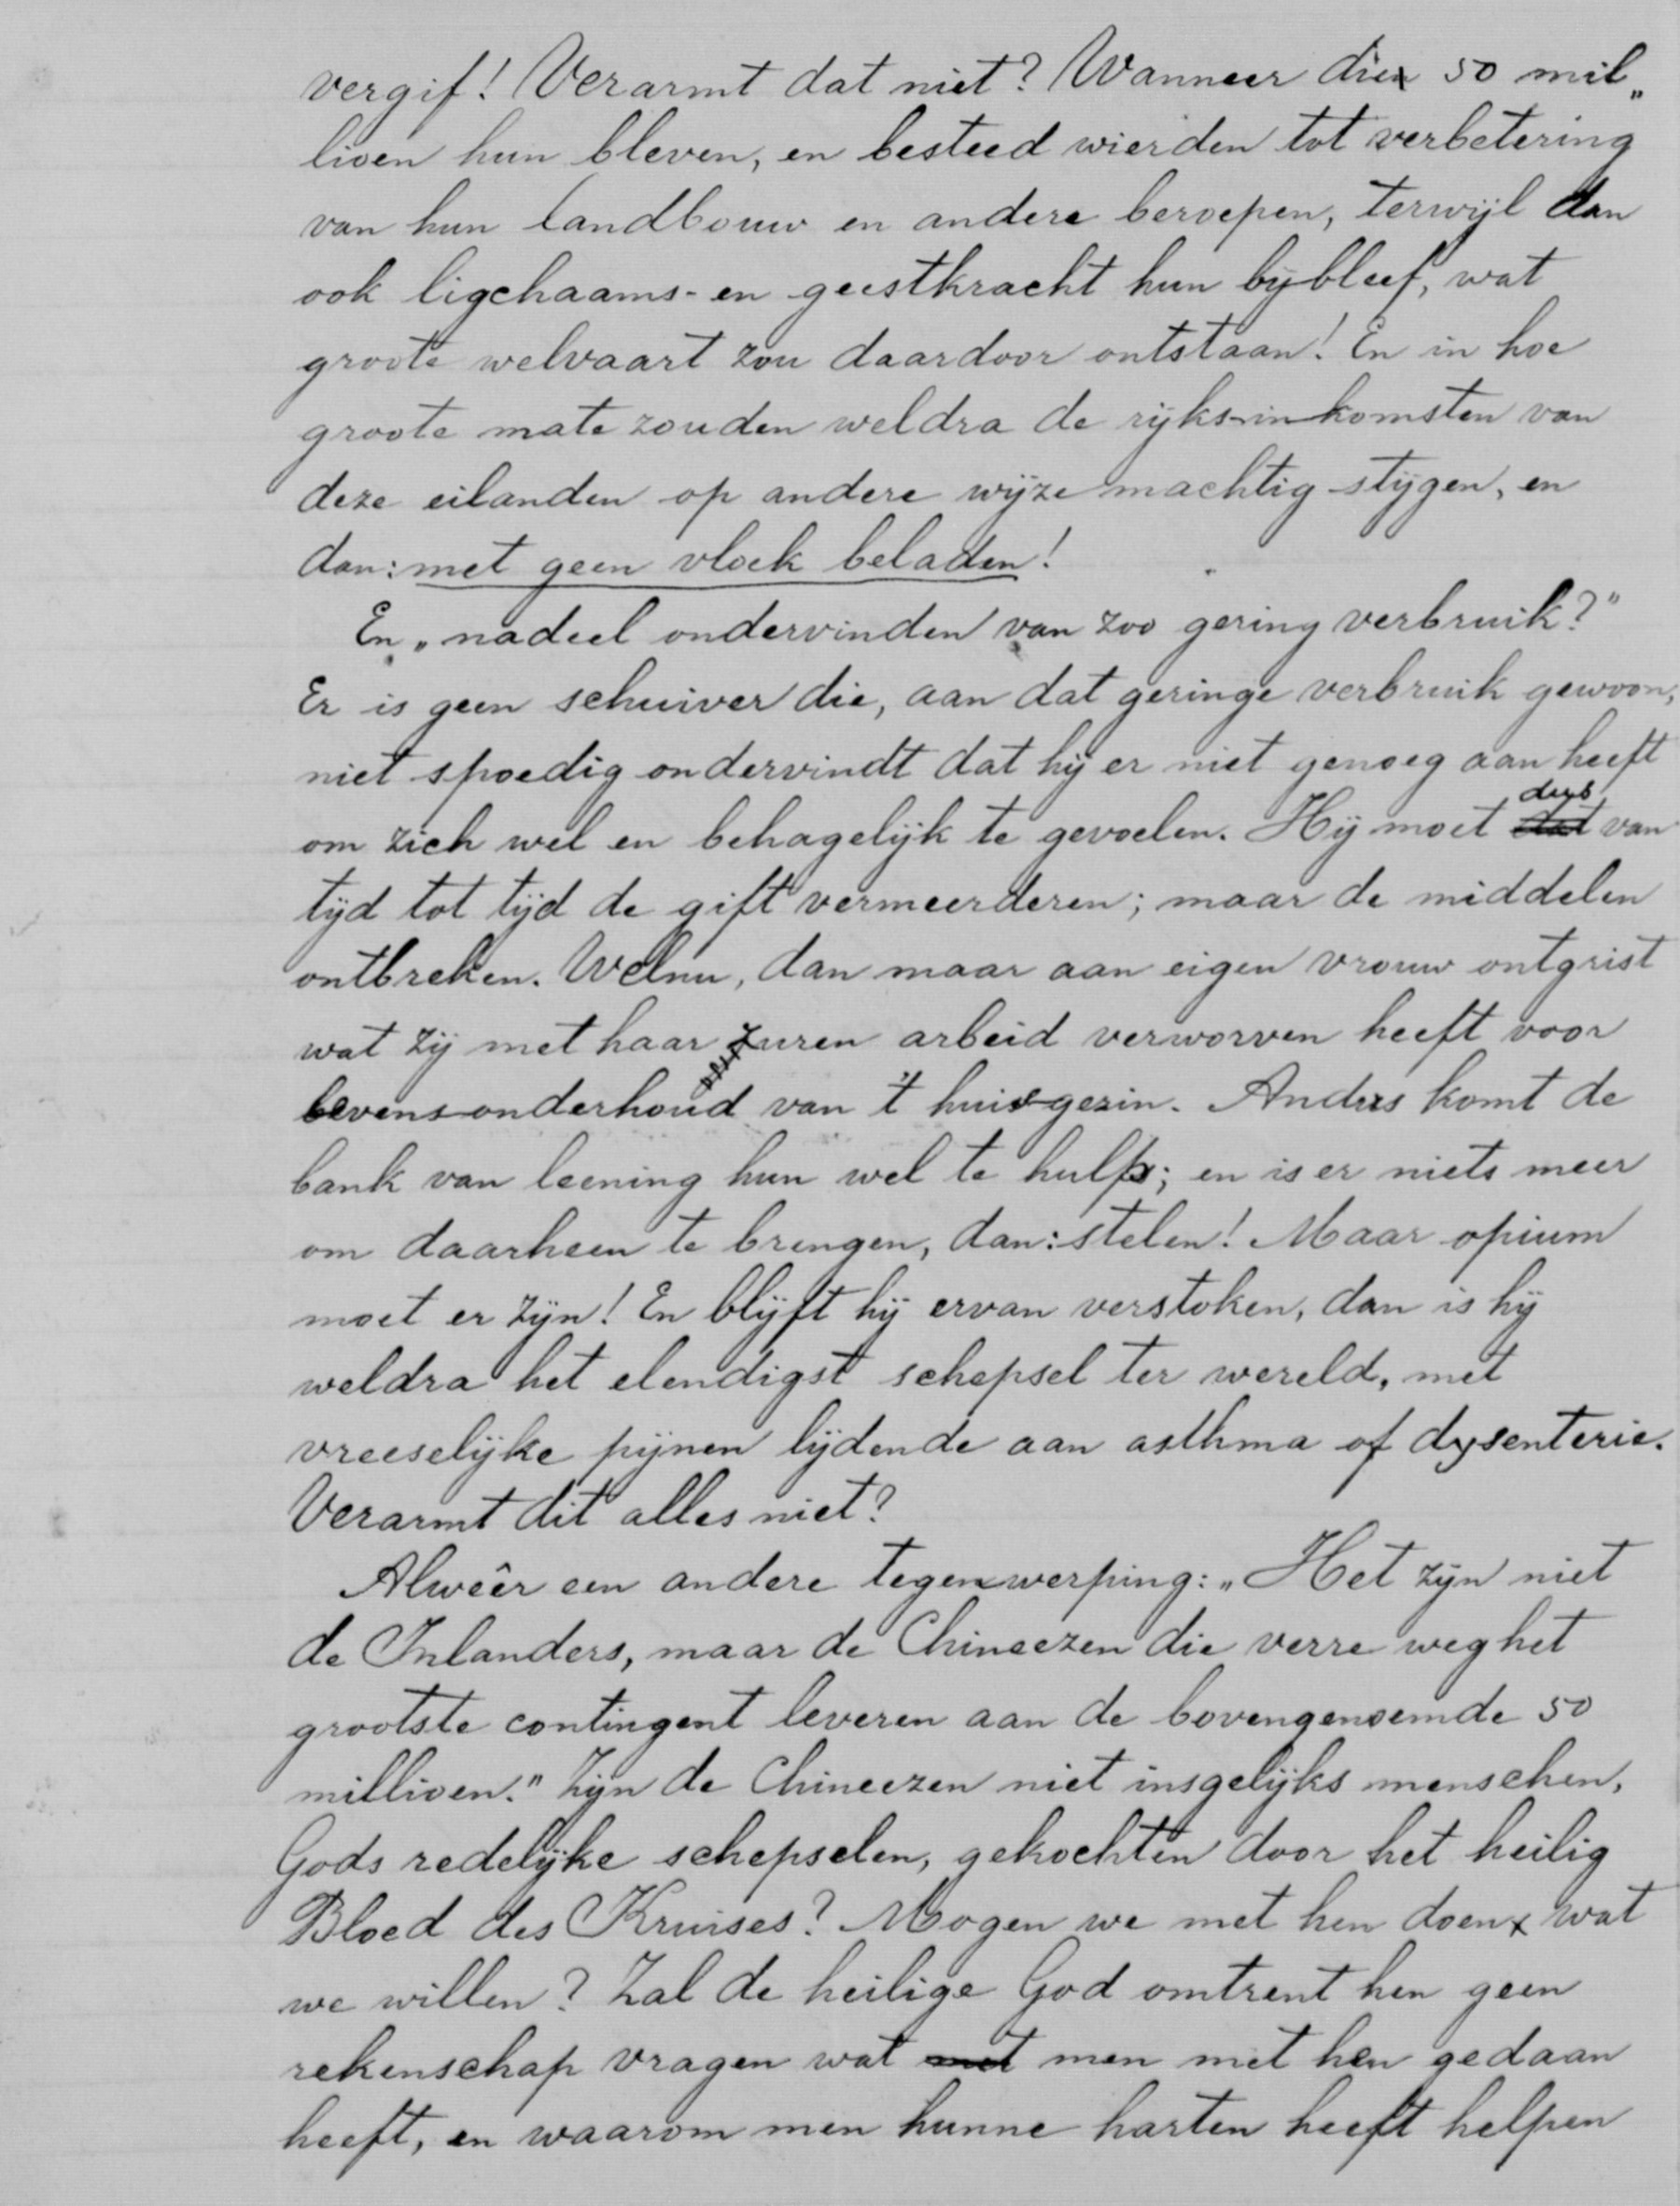 vergif! Verarmt dat niet? Wanneer die 50 mil„
lioen hun bleven, en besteed wierden tot verbetering
van hun landbouw en andere beroepen, terwijl dan
ook ligchaams- en geestkracht hun bijbleef, wat
groote welvaart zou daardoor ontstaan! En in hoe
groote mate zouden weldra de rijks-inkomsten van
deze eilanden op andere wijze machtig stijgen, en
dan: met geen vloek beladen!
En „nadeel ondervinden van zoo gering verbruik?"
Er is geen schuiver die, aan dat geringe verbruik gewoon,
niet spoedig ondervindt dat hij er niet genoeg aan heeft
om zich wel en behagelijk te gevoelen. Hij moet dus van
tijd tot tijd de gift vermeerderen; maar de middelen
ontbreken. Welnu, dan maar aan eigen vrouw ontgrist
wat zij met haar zuren arbeid verworven heeft voor
levensonderhoud van 't huisgezin. Anders komt de
bank van leening hun wel te hulp; en is er niets meer
om daarheen te brengen, dan: stelen! Maar opium
moet er zijn! En blijft hij ervan verstoken, dan is hij
weldra het elendigst schepsel ter wereld, met
vreeselijke pijnen lijdende aan asthma of dysenterie.
Verarmt dit alles niet?
Alweêr een andere tegenwerping: „Het zijn niet
de Inlanders, maar de Chineezen die verre weg het
grootste contingent leveren aan de bovengenoemde 50
millioen." Zijn de Chineezen niet insgelijks menschen,
Gods redelijke schepselen, gekochten door het heilig
Bloed des Kruises? Mogen we met hen doen wat
we willen? Zal de heilige God omtrent hen geen
rekenschap vragen wat men met hen gedaan
heeft, en waarom men hunne harten heeft helpen